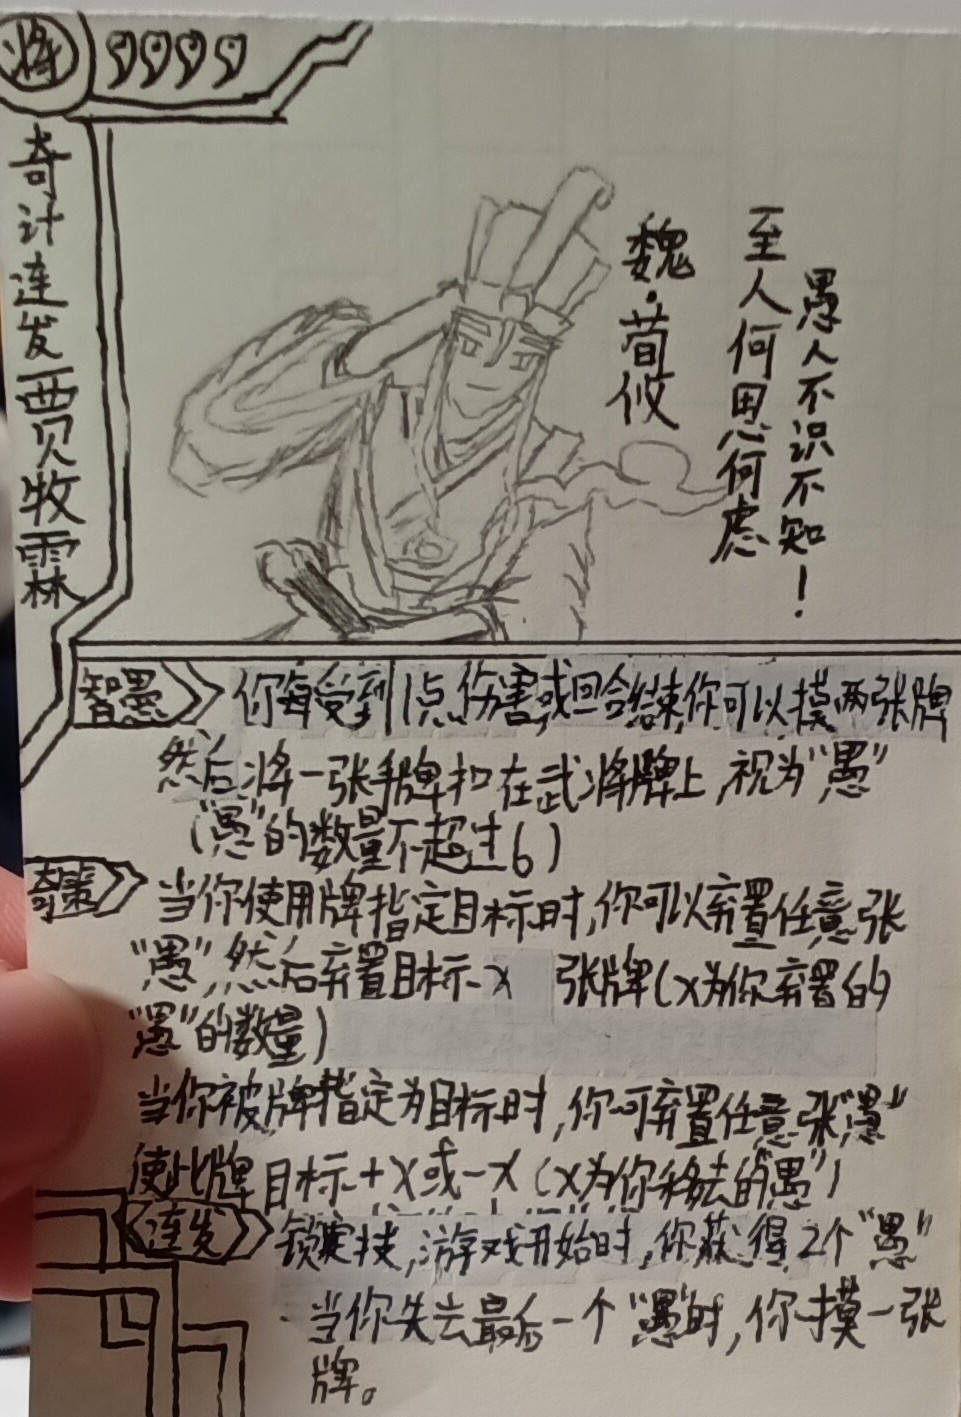 将
奇计连发贾牧霖
魏·荀攸
愚人不识不知！
至人何思何虑
智愚
你每受到1点伤害或回合结束,你可以摸两张牌
然后将一张手牌扣在武将牌上,视为“愚”
(“愚”的数量不超过6)
奇策
当你使用牌指定目标时,你可以弃置任意张
“愚”,然后弃置目标-x 张牌(x为你弃置的
“愚”的数量)
当你被牌指定为目标时,你可弃置任意张“愚”
使此牌目标+x或-x(x为你移去的“愚”)
连发
锁定技,游戏开始时,你获得2个“愚”
当你失去最后一个“愚”时,你摸一张
牌。